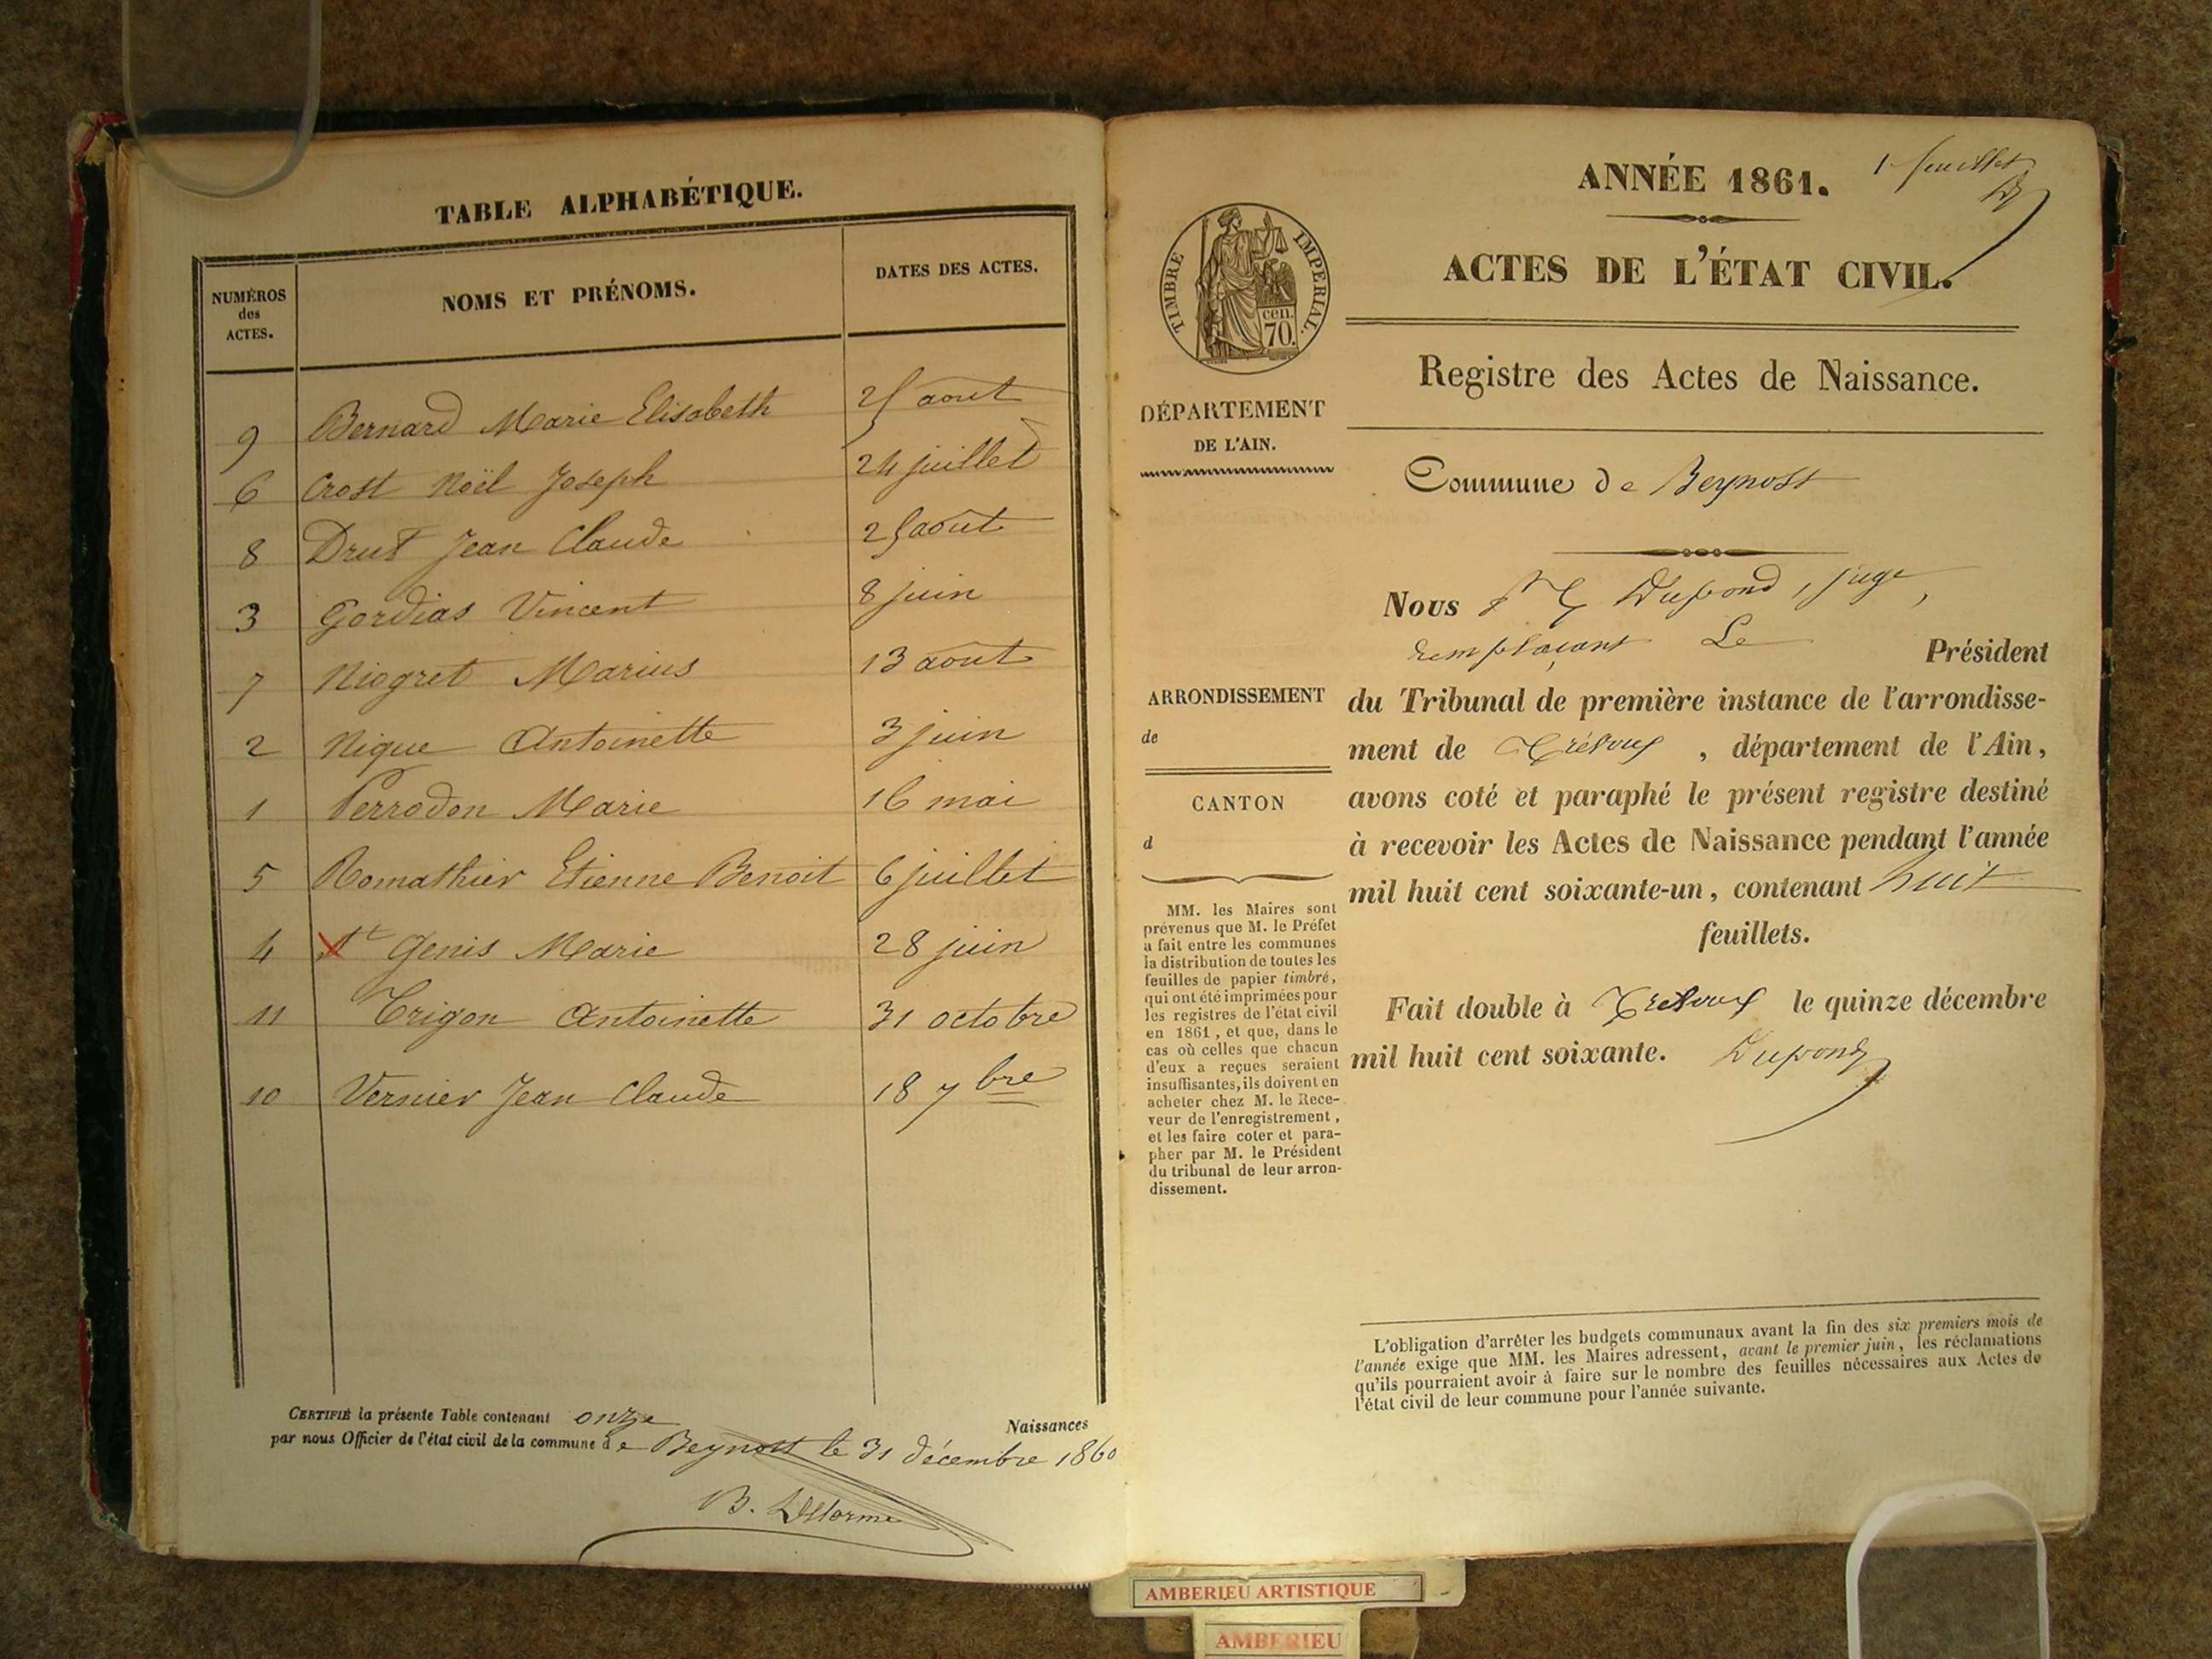 TABLE ALPHABÉTIQUE.
NUMÉROS des ACTES. NOMS ET PRÉNOMS. DATES DES ACTES.
9 Bernard Marie Elisabeth 25 aout
6 Crost Noël Joseph 24 juillet
8 Drut Jean Claude 25 août
3 Gordias Vincent 8 juin
7 Niogret Marius 13 août
2 Nique Antoinette 3 juin
1 Perrodon Marie 16 mai
5 Romathier Etienne Benoit 6 juillet
4 St Genis Marie 28 juin
11 Trigon Antoinette 31 octobre
10 Vernier Jean Claude 18 7bre
CERTIFIÉ la présente Table contenant onze Naissances
par nous Officier de l'état civil de la commune de Beynost le 31 décembre 1860
B. Delorme
1 feuillet
ANNÉE 1861.
ACTES DE L'ÉTAT CIVIL.
TIMBRE IMPERIAL.
cen.
70.
Registre des Actes de Naissance.
DÉPARTEMENT
DE L'AIN.
Commune de Beynost
Nous Dupond, juge,
remplaçant Le Président
ARRONDISSEMENT
de
CANTON
d
du Tribunal de première instance de l'arrondisse-
ment de Trévoux, département de l'Ain,
avons coté et paraphé le présent registre destiné
à recevoir les Actes de Naissance pendant l'année
mil huit cent soixante-un, contenant huit
feuillets.
Fait double à Trévoux le quinze décembre
mil huit cent soixante. Dupond
MM. les Maires sont
prévenus que M. le Préfet
a fait entre les communes
la distribution de toutes les
feuilles de papier timbré,
qui ont été imprimées pour
les registres de l'état civil
en 1861, et que, dans le
cas où celles que chacun
d'eux a reçues seraient
insuffisantes, ils doivent en
acheter chez M. le Rece-
veur de l'enregistrement,
et les faire coter et para-
pher par M. le Président
du tribunal de leur arron-
dissement.
L'obligation d'arrêter les budgets communaux avant la fin des six premiers mois de
l'année exige que MM. les Maires adressent, avant le premier juin, les réclamations
qu'ils pourraient avoir à faire sur le nombre des feuilles nécessaires aux Actes de
l'état civil de leur commune pour l'année suivante.
AMBERIEU ARTISTIQUE
AMBERIEU